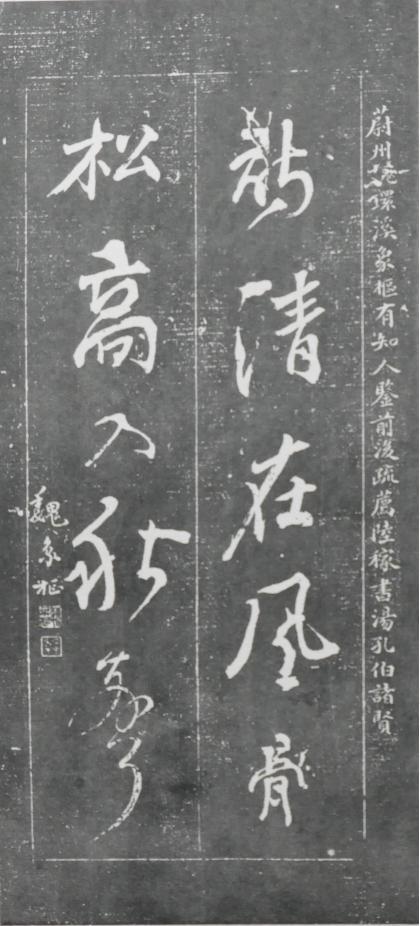 蔚州魏環溪象樞有知人鑒前後疏薦陸稼書湯孔伯諸賢
清在風骨
松高入
魏象樞